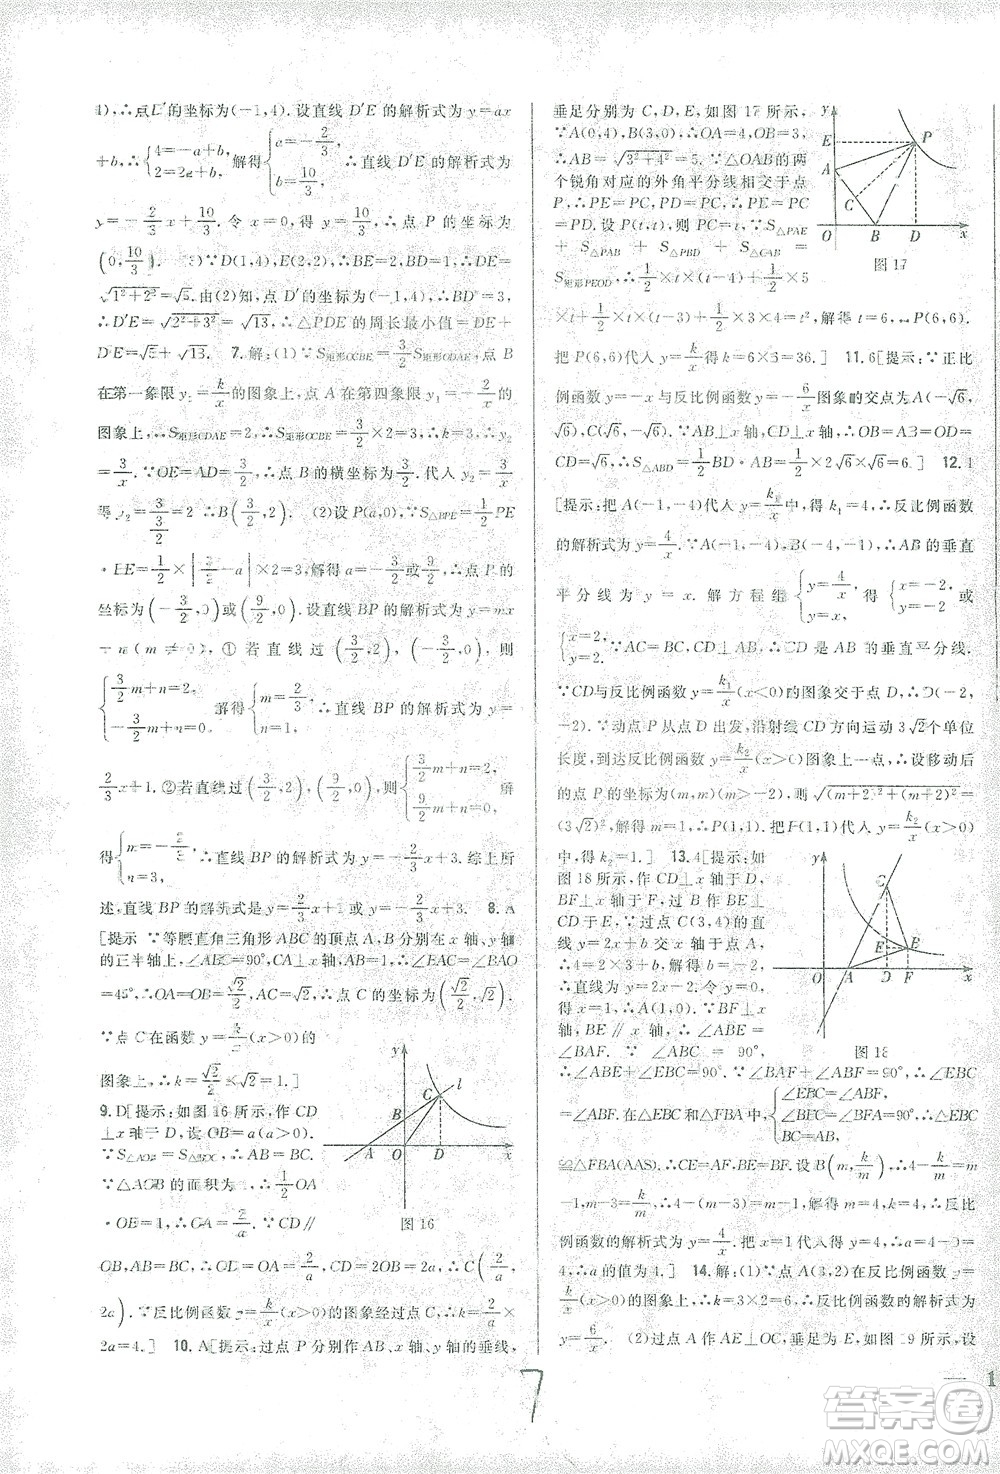 4),∴点D′的坐标为(-1,4).设直线D′E的解析式为y=ax
+b,∴{4=-a+b, 2=2a+b, 解得{a=-2/3, b=10/3, ∴直线D′E的解析式为
y=-2/3x+10/3.令x=0,得y=10/3,∴点P的坐标为
(0,10/3). (3)∵D(1,4),E(2,2),∴BE=2,BD=1,∴DE=
√1²+2²=√5.由(2)知,点D′的坐标为(-1,4),∴BD′=
3,∴D′E=√2²+3²=√13,∴△PDE的周长最小值=DE+
D′E=√5+√13. 7.解:(1)∵S矩形OCBE=3/2S矩形ODAE,点B
在第一象限y₂=k/x的图象上,点A在第四象限y₁=-2/x的
图象上,∴S矩形ODAE=2,∴S矩形OCBE=3/2×2=3,∴k=3,∴y₂
=3/x.∵OE=AD=3/2,∴点B的横坐标为3/2.代入y₂=3/x,
得y₂=3/(3/2)=2,∴B(3/2,2). (2)设P(a,0),∵S△BPE=1/2PE
·BE=1/2×|3/2-a|×2=3,解得a=-3/2或9/2,∴点P的
坐标为(-3/2,0)或(9/2,0).设直线BP的解析式为y=mx
+n(m≠0),①若直线过(3/2,2),(-3/2,0),则
{3/2m+n=2, -3/2m+n=0, 解得{m=2/3, n=1, ∴直线BP的解析式为y=
2/3x+1,②若直线过(3/2,2),(9/2,0),则{3/2m+n=2, 9/2m+n=0, 解
得{m=-2/3, n=3, ∴直线BP的解析式为y=-2/3x+3.综上所
述,直线BP的解析式是y=2/3x+1或y=-2/3x+3. 8.A
[提示:∵等腰直角三角形ABC的顶点A,B分别在x轴、y轴
的正半轴上,∠ABC=90°,CA⊥x轴,∴∠BAC=∠BAO
=45°,∴OA=OB=√2/2,AC=√2,∴点C的坐标为(√2/2,√2).
∵点C在函数y=k/x(x>0)的
图象上,∴k=√2/2×√2=1.]
9.D[提示:如图16所示,作CD
⊥x轴于D,设OB=a(a>0).
∵S△AOB=S△BOC,∴AB=BC.
∵△AOB的面积为1,∴1/2OA
·OB=1,∴OA=2/a.∵CD∥
OB,AB=BC,∴OD=OA=2/a,CD=2OB=2a,∴C(2/a,
2a).∵反比例函数y=k/x(x>0)的图象经过点C,∴k=2/a×
2a=4.] 10.A[提示:过点P分别作AB、x轴、y轴的垂线,
y
B
C
l
A
O
D
x
图16
垂足分别为C,D,E,如图17所示.
∵A(0,4),B(3,0),∴OA=4,OB=3,
∴AB=√3²+4²=5.∵△OAB的两
个锐角对应的外角平分线相交于点
P,∴PE=PC,PD=PC,∴PE=PC=
PD.设P(t,t),则PC=t.∵S△PAE
+S△PAB+S△PBD+S△OAB=
S矩形PEOD,∴1/2×t×(t-4)+1/2×5
×t+1/2×t×(t-3)+1/2×3×4=t²,解得t=6,∴P(6,6).
把P(6,6)代入y=k/x得k=6×6=36.] 11.6[提示:∵正比
例函数y=-x与反比例函数y=-6/x图象的交点为A(-√6,
√6),C(√6,-√6),AB⊥x轴,CD⊥x轴,∴OB=AB=OD=
CD=√6,∴S△ABD=1/2BD·AB=1/2×2√6×√6=6.] 12.1
[提示:把A(-1,-4)代入y=k₁/x中,得k₁=4,∴反比例函数
的解析式为y=4/x.∵A(-1,-4),B(-4,-1),∴AB的垂直
平分线为y=x.解方程组{y=4/x, y=x, 得{x=-2, y=-2或
{x=2, y=2.∵AC=BC,CD⊥AB,∴CD是AB的垂直平分线.
∵CD与反比例函数y=k₁/x(x<0)的图象交于点D,∴D(-2,
-2).∵动点P从点D出发,沿射线CD方向运动3√2个单位
长度,到达反比例函数y=k₂/x(x>0)图象上一点,∴设移动后
的点P的坐标为(m,m)(m>0),则√(m+2)²+(m+2)²=
(3√2)²,解得m=1,∴P(1,1).把P(1,1)代入y=k₂/x(x>0)
中,得k₂=1.] 13.4[提示:如
图18所示,作CD⊥x轴于D,
BF⊥x轴于F,过B作BE⊥
CD于E.∵过点C(3,4)的直线
y=2x+b交x轴于点A,∴4=
2×3+b,解得b=-2,
∴直线为y=2x-2.令y=0,
得x=1,∴A(1,0).∵BF⊥x
轴,BE∥x轴,∴∠ABE=
∠BAF.∵∠ABC=90°,
∴∠ABE+∠EBC=90°.∵∠BAF+∠ABF=90°,∴∠EBC=
∠ABF.在△EBC和△FBA中,{∠EBC=∠ABF, ∠BEC=∠BFA=90°,∴△EBC BC=AB,
≌△FBA(AAS).∴CE=AF,BE=BF.设B(m,k/m),∵4-k/m=m
-1,m-3=k/m,∴4-(m-3)=m-1,解得m=4,k=4,∴反比
例函数的解析式为y=4/x.把x=1代入得y=4,∴a=4-0=
4,∴a的值为4.] 14.解:(1)∵点A(3,2)在反比例函数
y=k/x(x>0)的图象上,∴k=3×2=6,∴反比例函数的解析式为
y=6/x. (2)过点A作AE⊥OC,垂足为E,如图19所示,设
y
E
P
A
C
O
B
D
x
图17
y
C
E
B
O
A
D
F
x
图18
7
— 1
答案卷
MXQE.COM